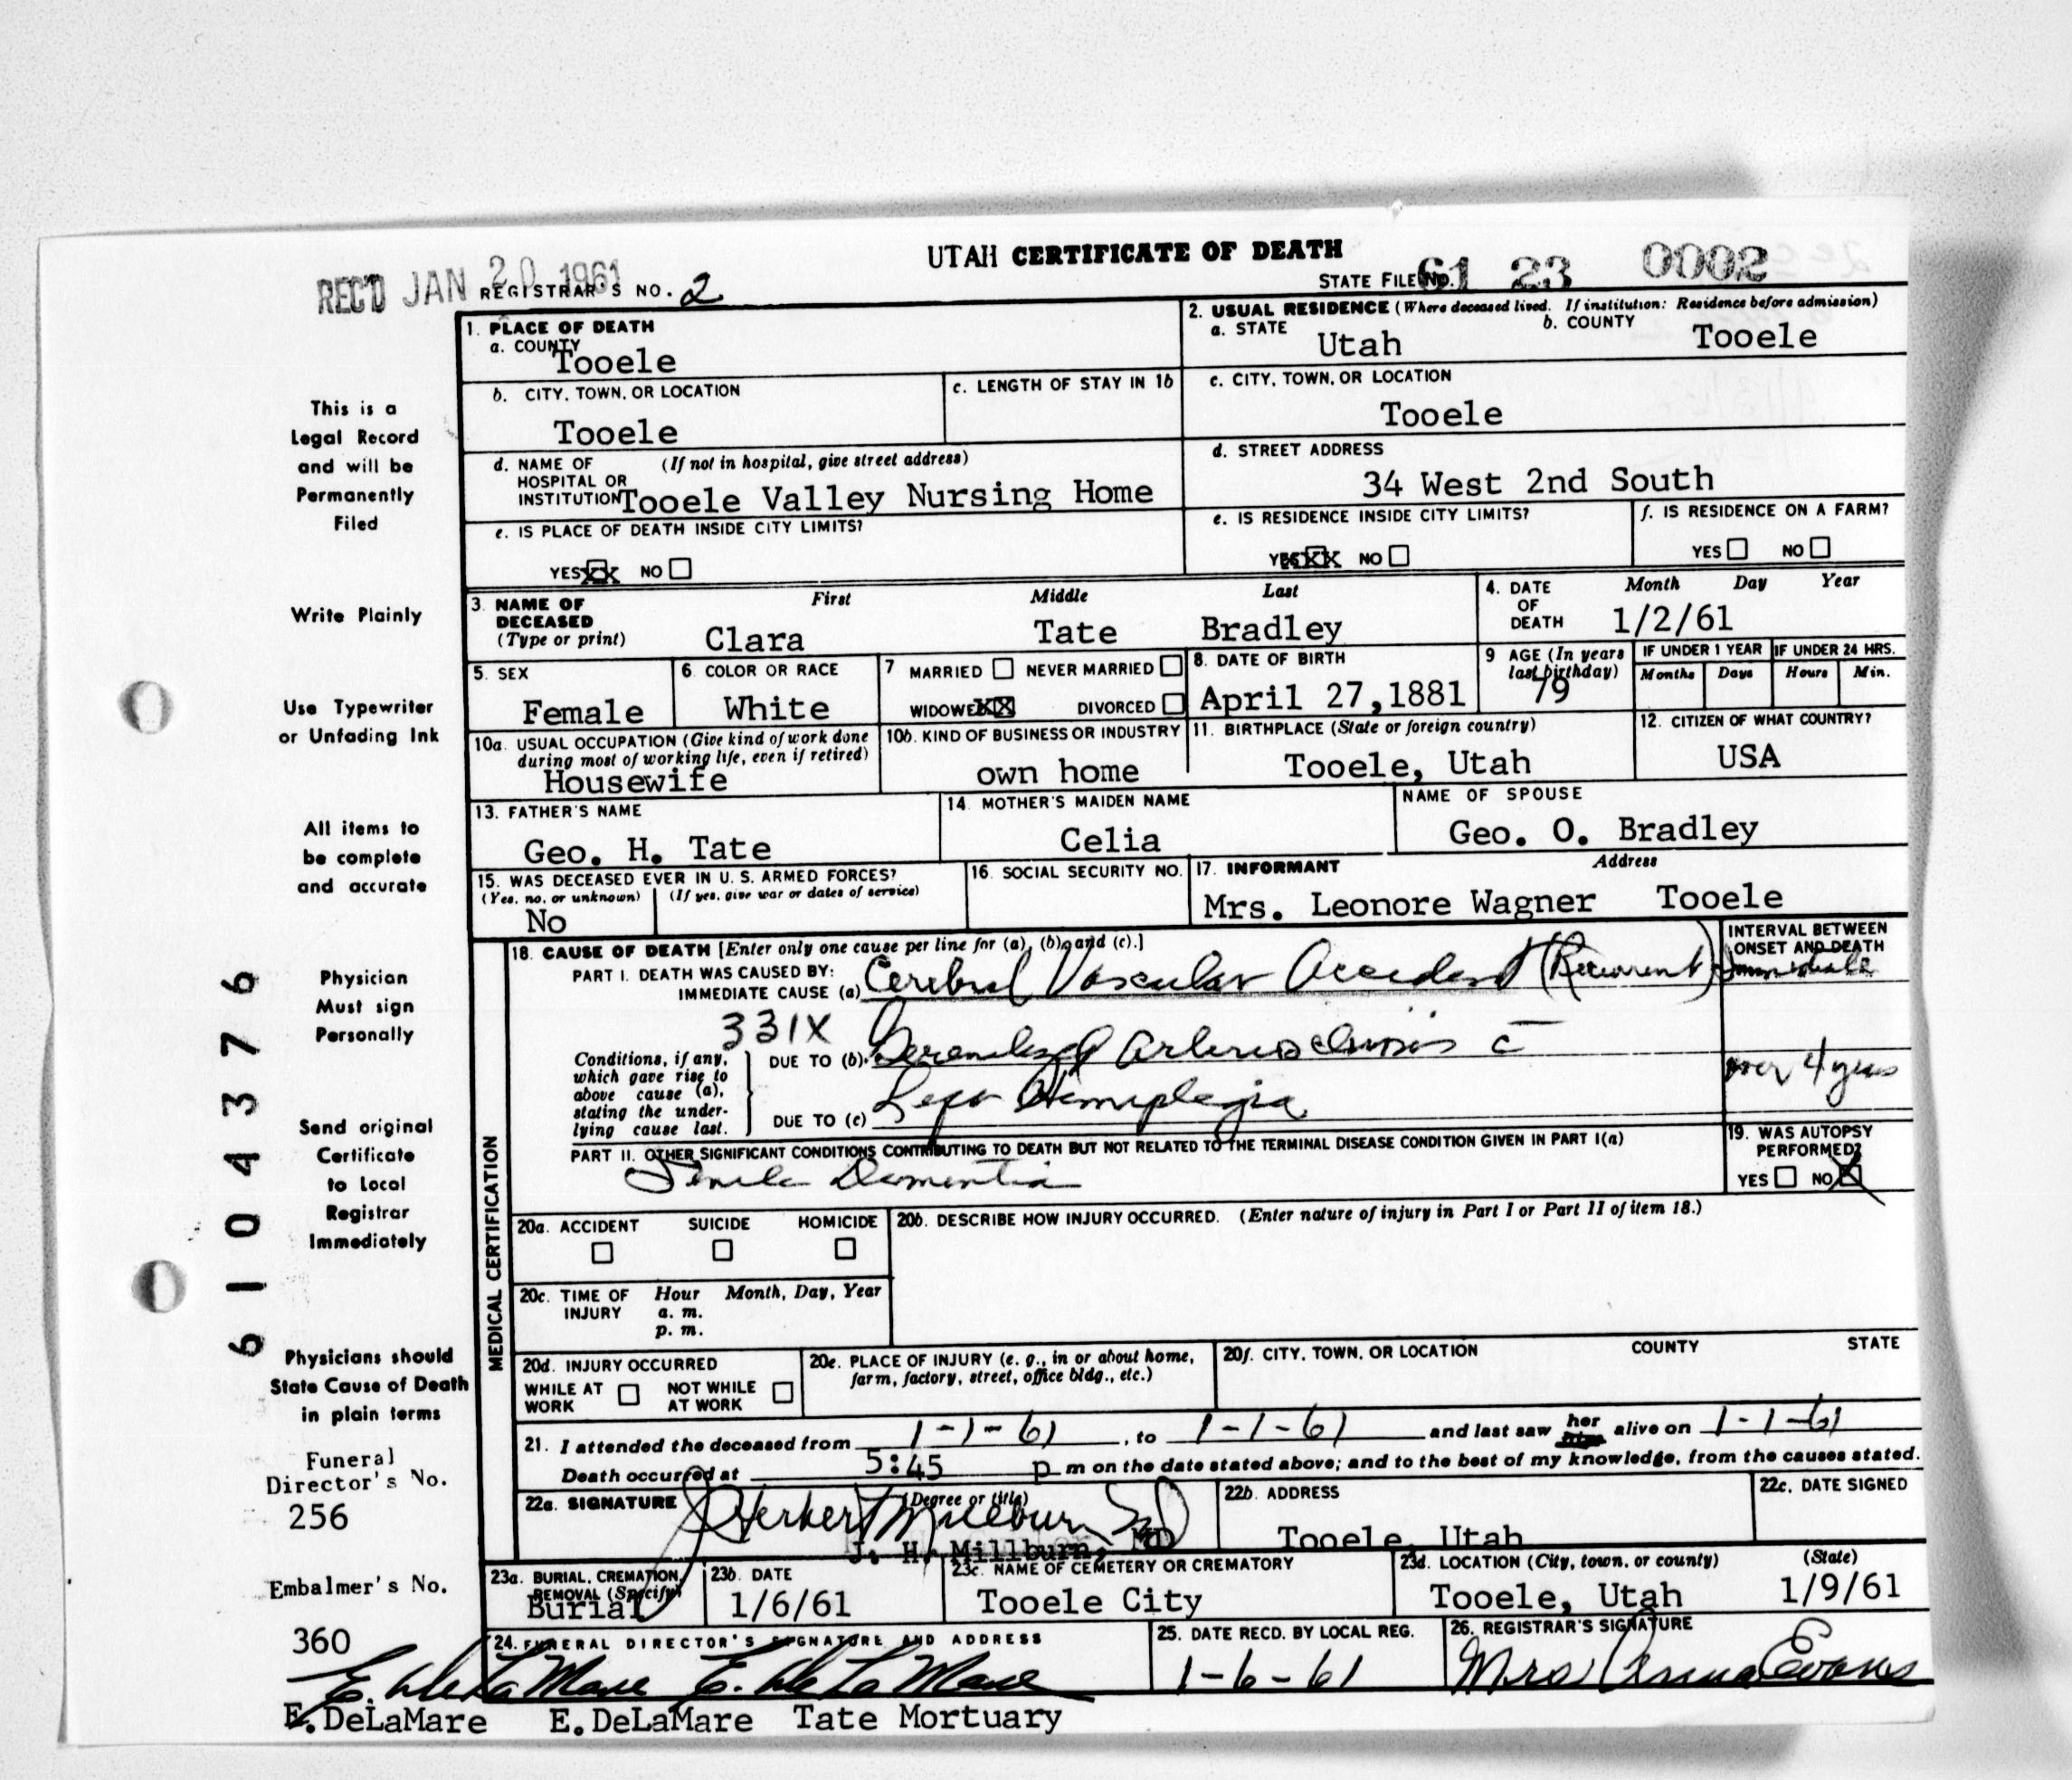 UTAH CERTIFICATE OF DEATH
REC'D JAN 20 1961
REGISTRAR'S NO. 2
STATE FILE NO. 61 23 0002
1. PLACE OF DEATH
a. COUNTY
Tooele
2. USUAL RESIDENCE (Where deceased lived. If institution: Residence before admission)
a. STATE
Utah
b. COUNTY
Tooele
b. CITY, TOWN, OR LOCATION
Tooele
c. LENGTH OF STAY IN 1b
c. CITY, TOWN, OR LOCATION
Tooele
d. NAME OF HOSPITAL OR INSTITUTION (If not in hospital, give street address)
Tooele Valley Nursing Home
d. STREET ADDRESS
34 West 2nd South
e. IS PLACE OF DEATH INSIDE CITY LIMITS?
YES XX NO
e. IS RESIDENCE INSIDE CITY LIMITS?
YES XXX NO
f. IS RESIDENCE ON A FARM?
YES NO
3. NAME OF DECEASED (Type or print)
First Middle Last
Clara Tate Bradley
4. DATE OF DEATH
Month Day Year
1/2/61
5. SEX
Female
6. COLOR OR RACE
White
7 MARRIED NEVER MARRIED
WIDOWED XX DIVORCED
8. DATE OF BIRTH
April 27,1881
9 AGE (In years last birthday)
79
IF UNDER 1 YEAR
Months Days
IF UNDER 24 HRS.
Hours Min.
10a. USUAL OCCUPATION (Give kind of work done during most of working life, even if retired)
Housewife
10b. KIND OF BUSINESS OR INDUSTRY
own home
11. BIRTHPLACE (State or foreign country)
Tooele, Utah
12. CITIZEN OF WHAT COUNTRY?
USA
13. FATHER'S NAME
Geo. H. Tate
14. MOTHER'S MAIDEN NAME
Celia
NAME OF SPOUSE
Geo. O. Bradley
15. WAS DECEASED EVER IN U. S. ARMED FORCES?
(Yes, no, or unknown) (If yes, give war or dates of service)
No
16. SOCIAL SECURITY NO.
17. INFORMANT Address
Mrs. Leonore Wagner Tooele
MEDICAL CERTIFICATION
18. CAUSE OF DEATH [Enter only one cause per line for (a), (b), and (c).]
PART I. DEATH WAS CAUSED BY:
IMMEDIATE CAUSE (a) Cerebral Vascular Accident (Recurrent)
INTERVAL BETWEEN ONSET AND DEATH
Immediate
331X
Conditions, if any, which gave rise to above cause (a), stating the underlying cause last.
DUE TO (b) Generalized Arteriosclerosis c̄
over 4 years
DUE TO (c) Hemiplegia
PART II. OTHER SIGNIFICANT CONDITIONS CONTRIBUTING TO DEATH BUT NOT RELATED TO THE TERMINAL DISEASE CONDITION GIVEN IN PART I(a)
Senile Dementia
19. WAS AUTOPSY PERFORMED?
YES NO X
20a. ACCIDENT SUICIDE HOMICIDE
20b. DESCRIBE HOW INJURY OCCURRED. (Enter nature of injury in Part I or Part II of item 18.)
20c. TIME OF INJURY
Hour Month, Day, Year
a. m.
p. m.
20d. INJURY OCCURRED
WHILE AT WORK NOT WHILE AT WORK
20e. PLACE OF INJURY (e. g., in or about home, farm, factory, street, office bldg., etc.)
20f. CITY, TOWN, OR LOCATION COUNTY STATE
21. I attended the deceased from 1-1-61, to 1-1-61 and last saw her him alive on 1-1-61
Death occurred at 5:45 p m on the date stated above; and to the best of my knowledge, from the causes stated.
22a. SIGNATURE (Degree or title)
J Herbert Millburn MD
J. H. Millburn, MD
22b. ADDRESS
Tooele, Utah
22c. DATE SIGNED
23a. BURIAL, CREMATION, REMOVAL (Specify)
Burial
23b. DATE
1/6/61
23c. NAME OF CEMETERY OR CREMATORY
Tooele City
23d. LOCATION (City, town, or county) (State)
Tooele, Utah 1/9/61
24. FUNERAL DIRECTOR'S SIGNATURE AND ADDRESS
E. DeLaMare E. DeLaMare
E.DeLaMare E.DeLaMare Tate Mortuary
25. DATE RECD. BY LOCAL REG.
1-6-61
26. REGISTRAR'S SIGNATURE
Mrs Evans
This is a
Legal Record
and will be
Permanently
Filed
Write Plainly
Use Typewriter
or Unfading Ink
All items to
be complete
and accurate
Physician
Must sign
Personally
Send original
Certificate
to Local
Registrar
Immediately
Physicians should
State Cause of Death
in plain terms
Funeral
Director's No.
256
Embalmer's No.
360
6104376